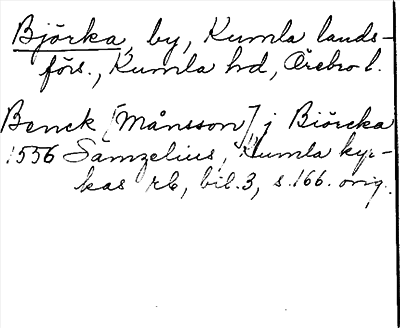 Björka, by, Kumla lands-
förs., Kumla hd, Örebro l.
Benck [Månsson] j Biörcka
1556 Samzelius, Kumla kyr-
kas rb, bil. 3, s. 166. orig.